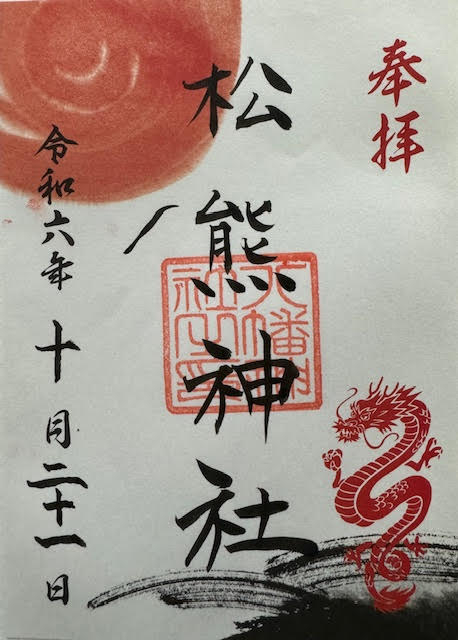 奉拝
松ノ熊神社
八幡神社之印
令和六年十月二十一日